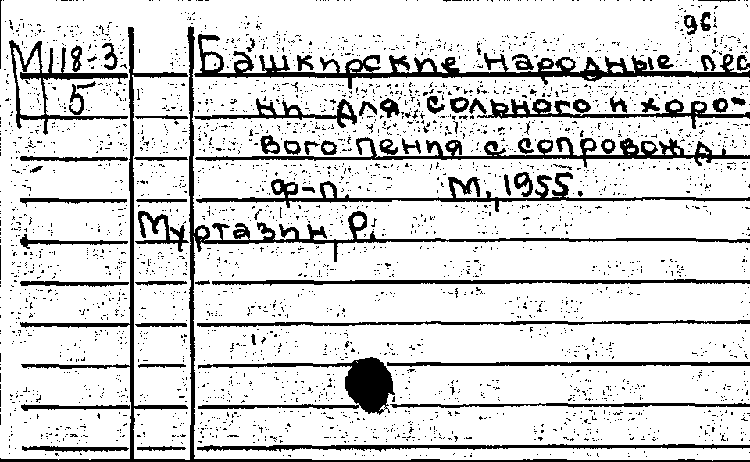 96
М118-3 Башкирские народные пес
5 ни для сольного и хоро-
вого пения с сопровожд.
ф-п. М., 1955.
Муртазин, Р.